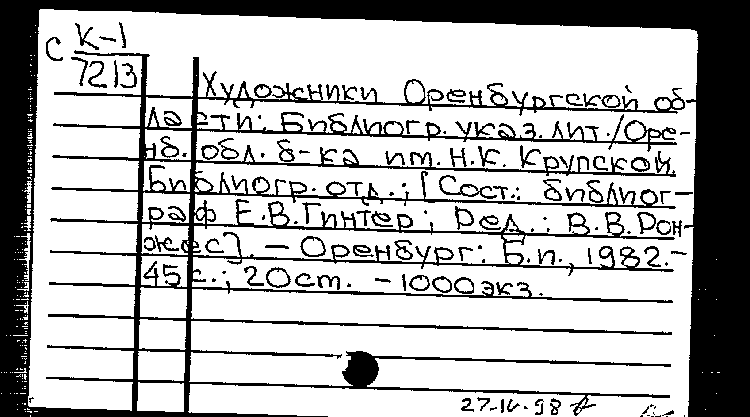 С К-1
7213
Художники Оренбургской об-
ласти: Библиогр. указ. лит./Оре-
нб. обл. б-ка им. Н.К. Крупской.
Библиогр. отд.; [Сост.: библиог-
раф Е.В. Гинтер; Ред.: В.В. Рон-
жес]. - Оренбург: Б.п., 1982.-
45 с.; 20 ст. - 1000 экз.